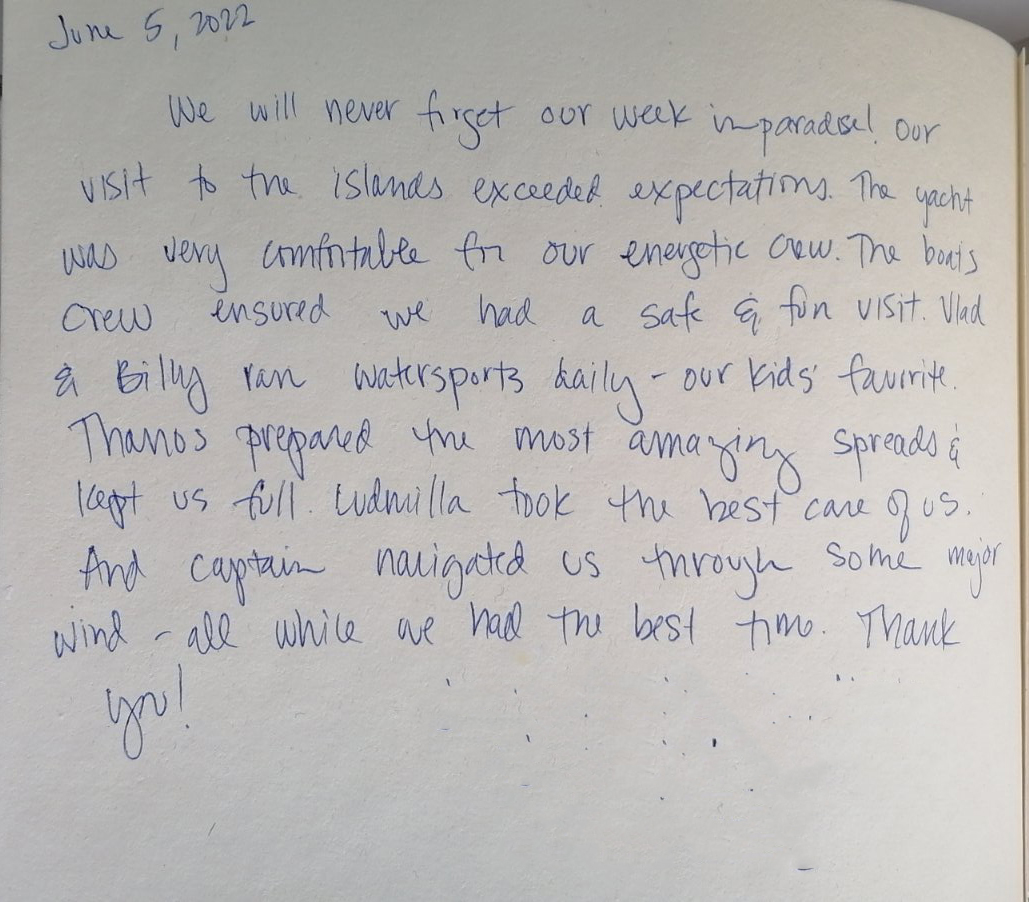 June 5, 2022
We will never forget our week in paradise! Our
visit to the islands exceeded expectations. The yacht
was very comfortable for our energetic crew. The boats
crew ensured we had a safe & fun visit. Vlad
& Billy ran watersports daily - our kids' favorite.
Thanos prepared the most amazing spreads &
kept us full. Ludmilla took the best care of us.
And captain navigated us through some major
wind - all while we had the best time. Thank
you!